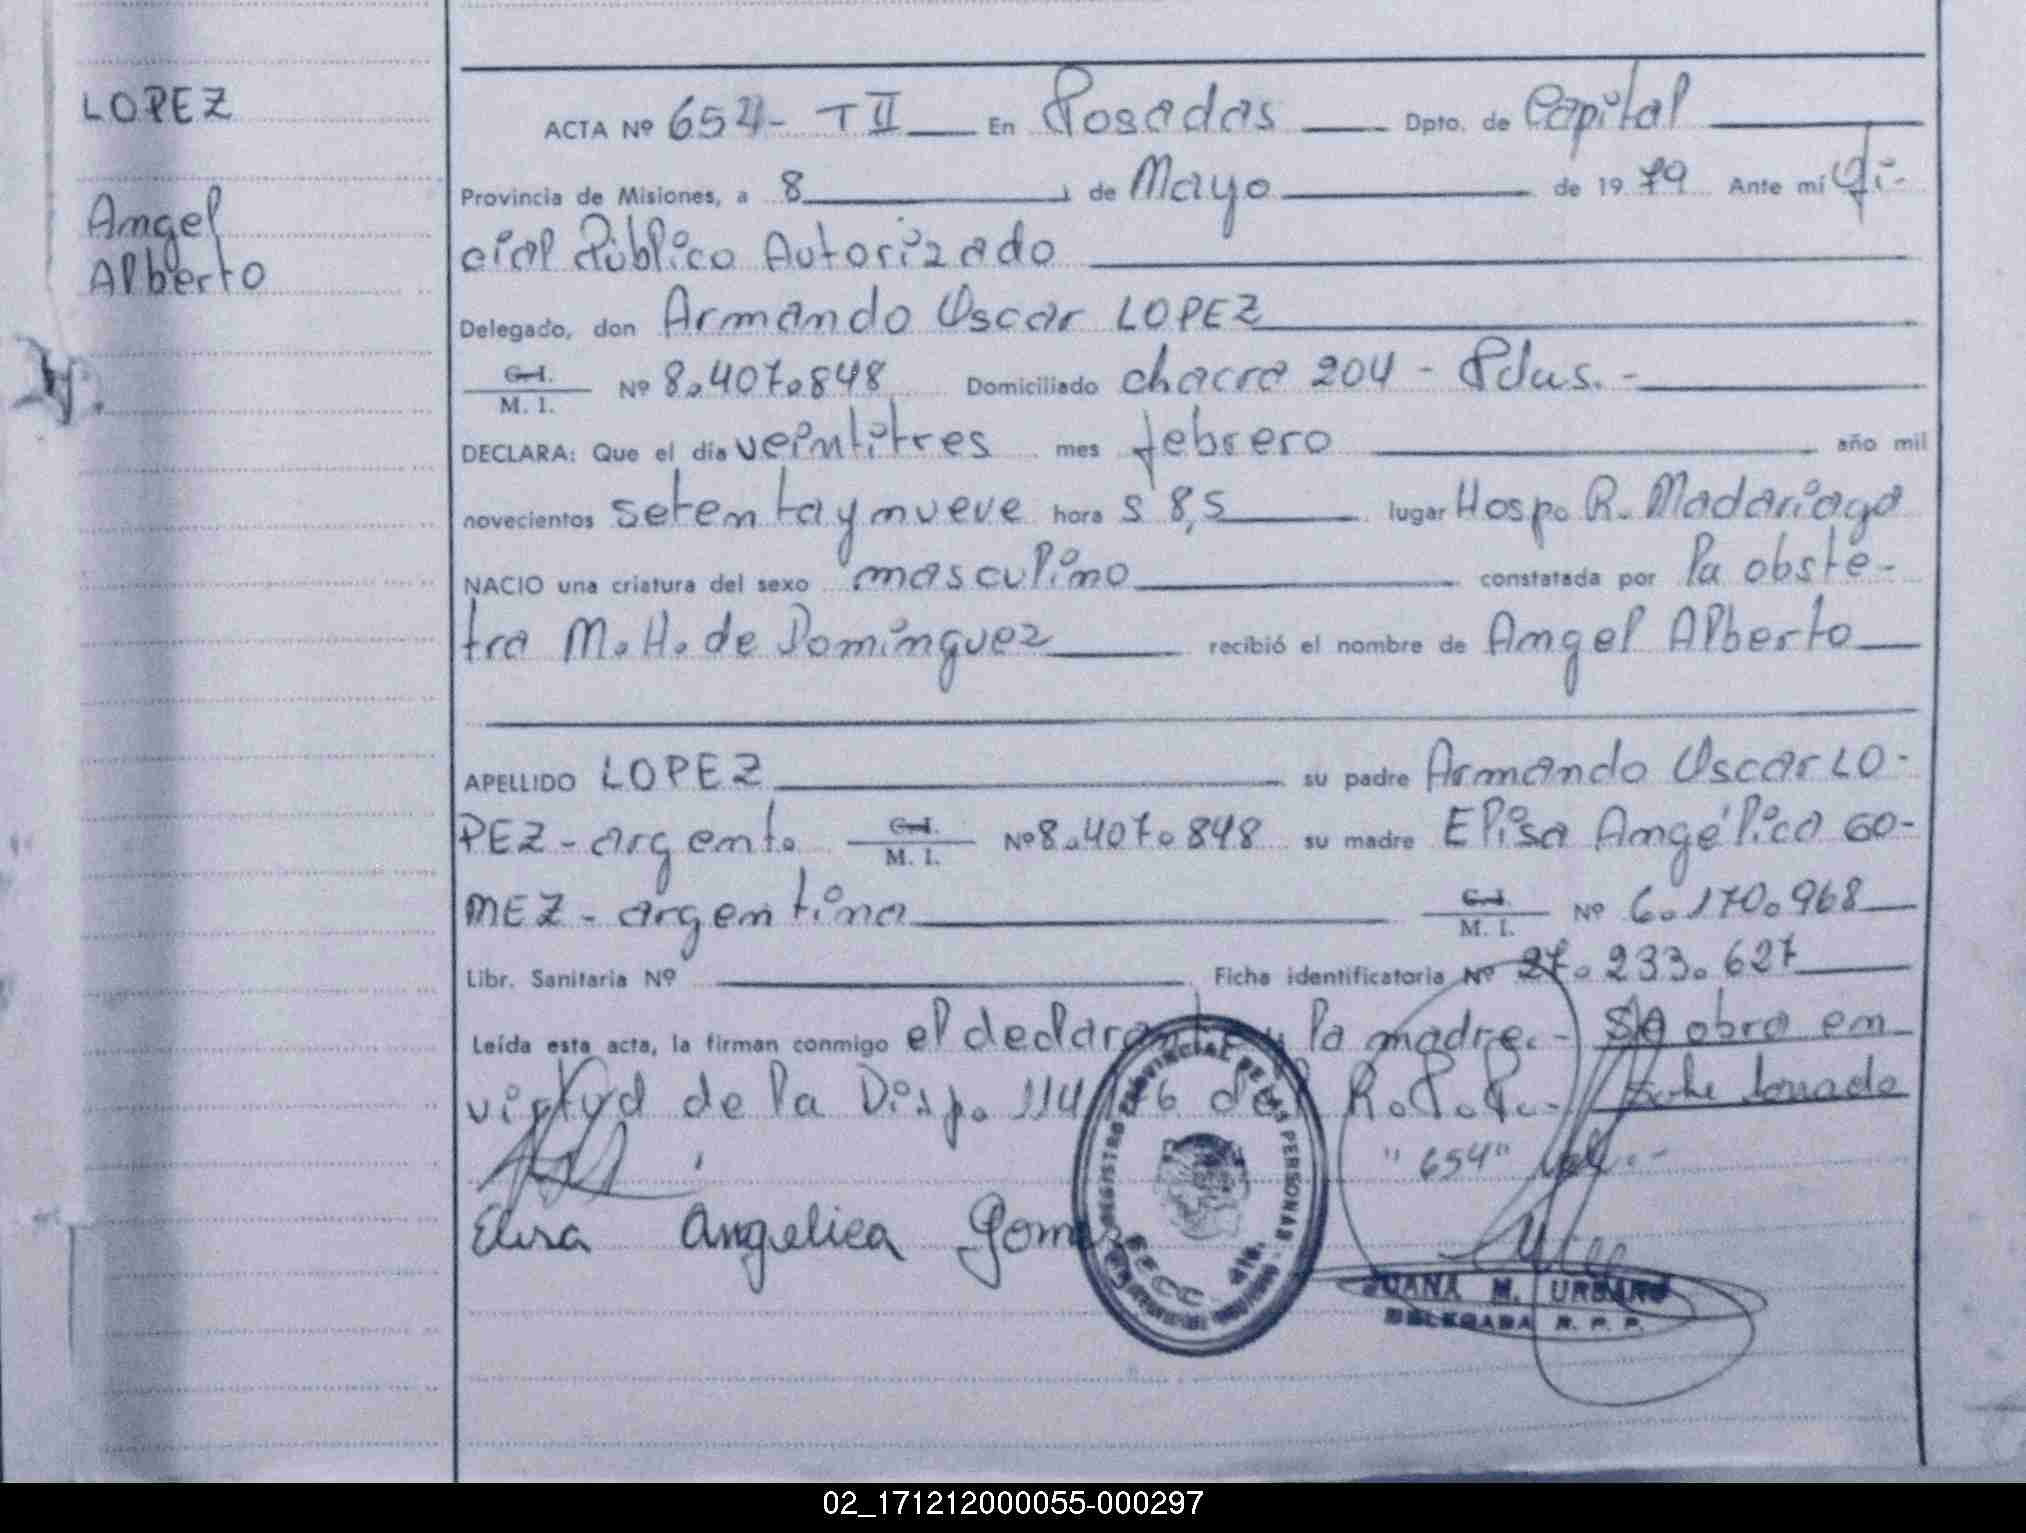 LOPEZ
Angel
Alberto
ACTA Nº 654- T II En Posadas Dpto. de Capital
Provincia de Misiones, a 8 de Mayo de 1979 Ante mí Ofi-
cial Público Autorizado
Delegado, don Armando Oscar LOPEZ
C.I.
M. I. Nº 8.407.848 Domiciliado chacra 204 - Pdas. -
DECLARA: Que el día veintitres mes febrero año mil
novecientos setenta y nueve hora s 8,5 lugar Hosp. R. Madariaga
NACIO una criatura del sexo masculino constatada por la obste-
tra M. H. de Dominguez recibió el nombre de Angel Alberto
APELLIDO LOPEZ su padre Armando Oscar LO-
PEZ - argent. C.I. M. I. Nº 8.407.848 su madre Elisa Angélica GO-
MEZ - argentina C.I. M. I. Nº 6.170.968
Libr. Sanitaria Nº Ficha identificatoria Nº 27.233.627
Leída esta acta, la firman conmigo el declarante y la madre. - obra en
virtud de la Disp. 114 del R. P. P. -
"654"
Elisa Angelica Gomez
REGISTRO PROVINCIAL DE LAS PERSONAS
JUANA M. URBANO
DELEGADA R. P. P.
02_171212000055-000297